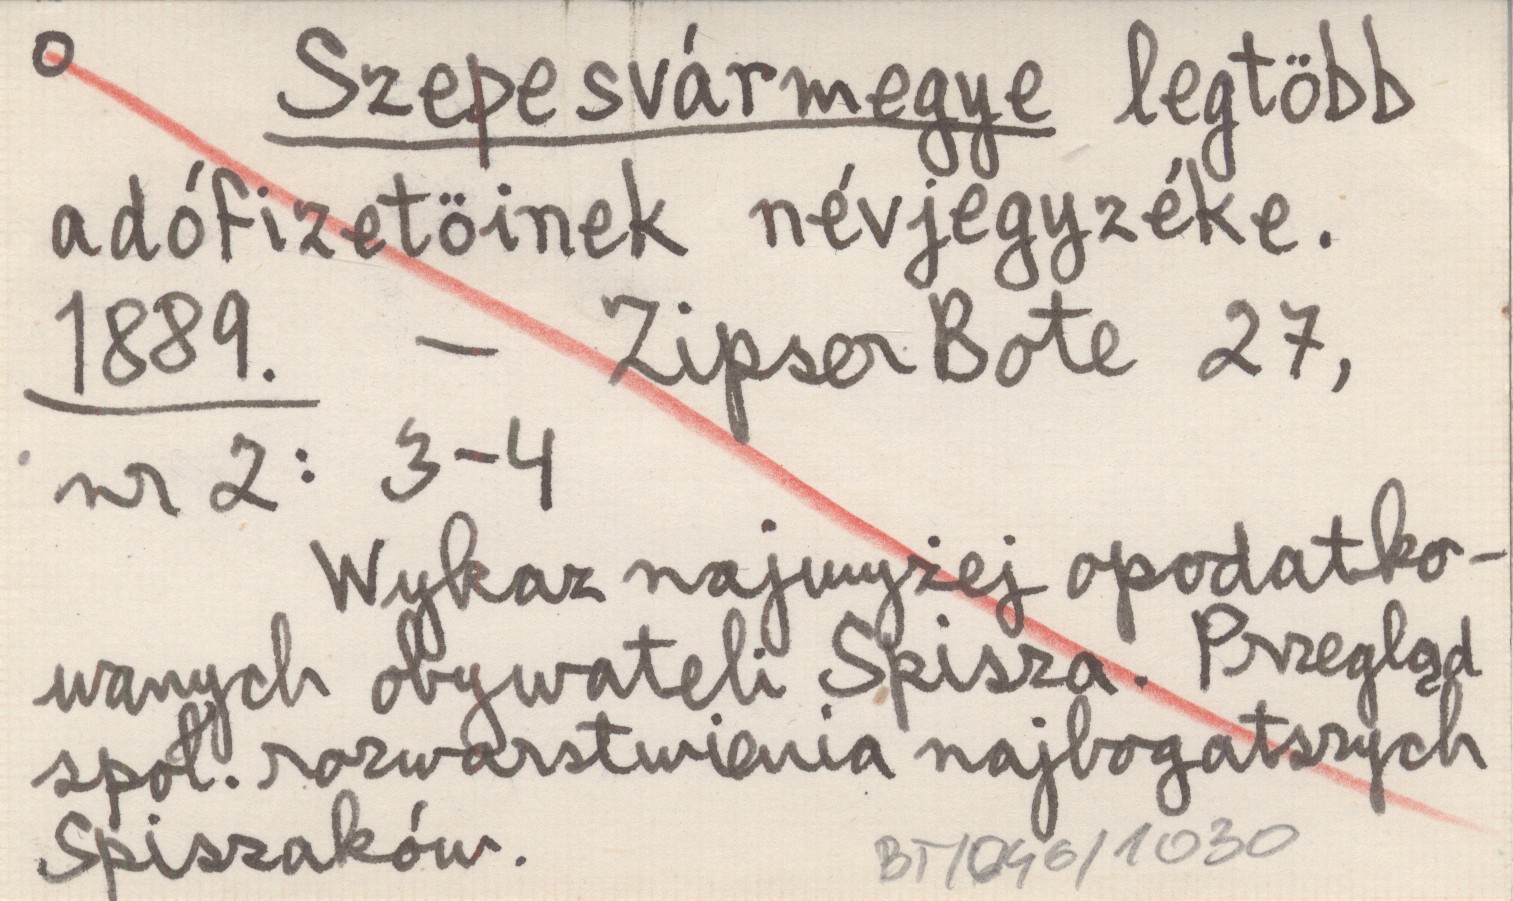 Szepesvármegye legtöbb
adófizetöinek névjegyzéke.
1889. – Zipser Bote 27,
nr 2: 3-4
Wykaz najwyżej opodatko-
wanych obywateli Spisza. Przegląd
społ. rozwarstwienia najbogatszych
Spiszaków.
BT/046/1030